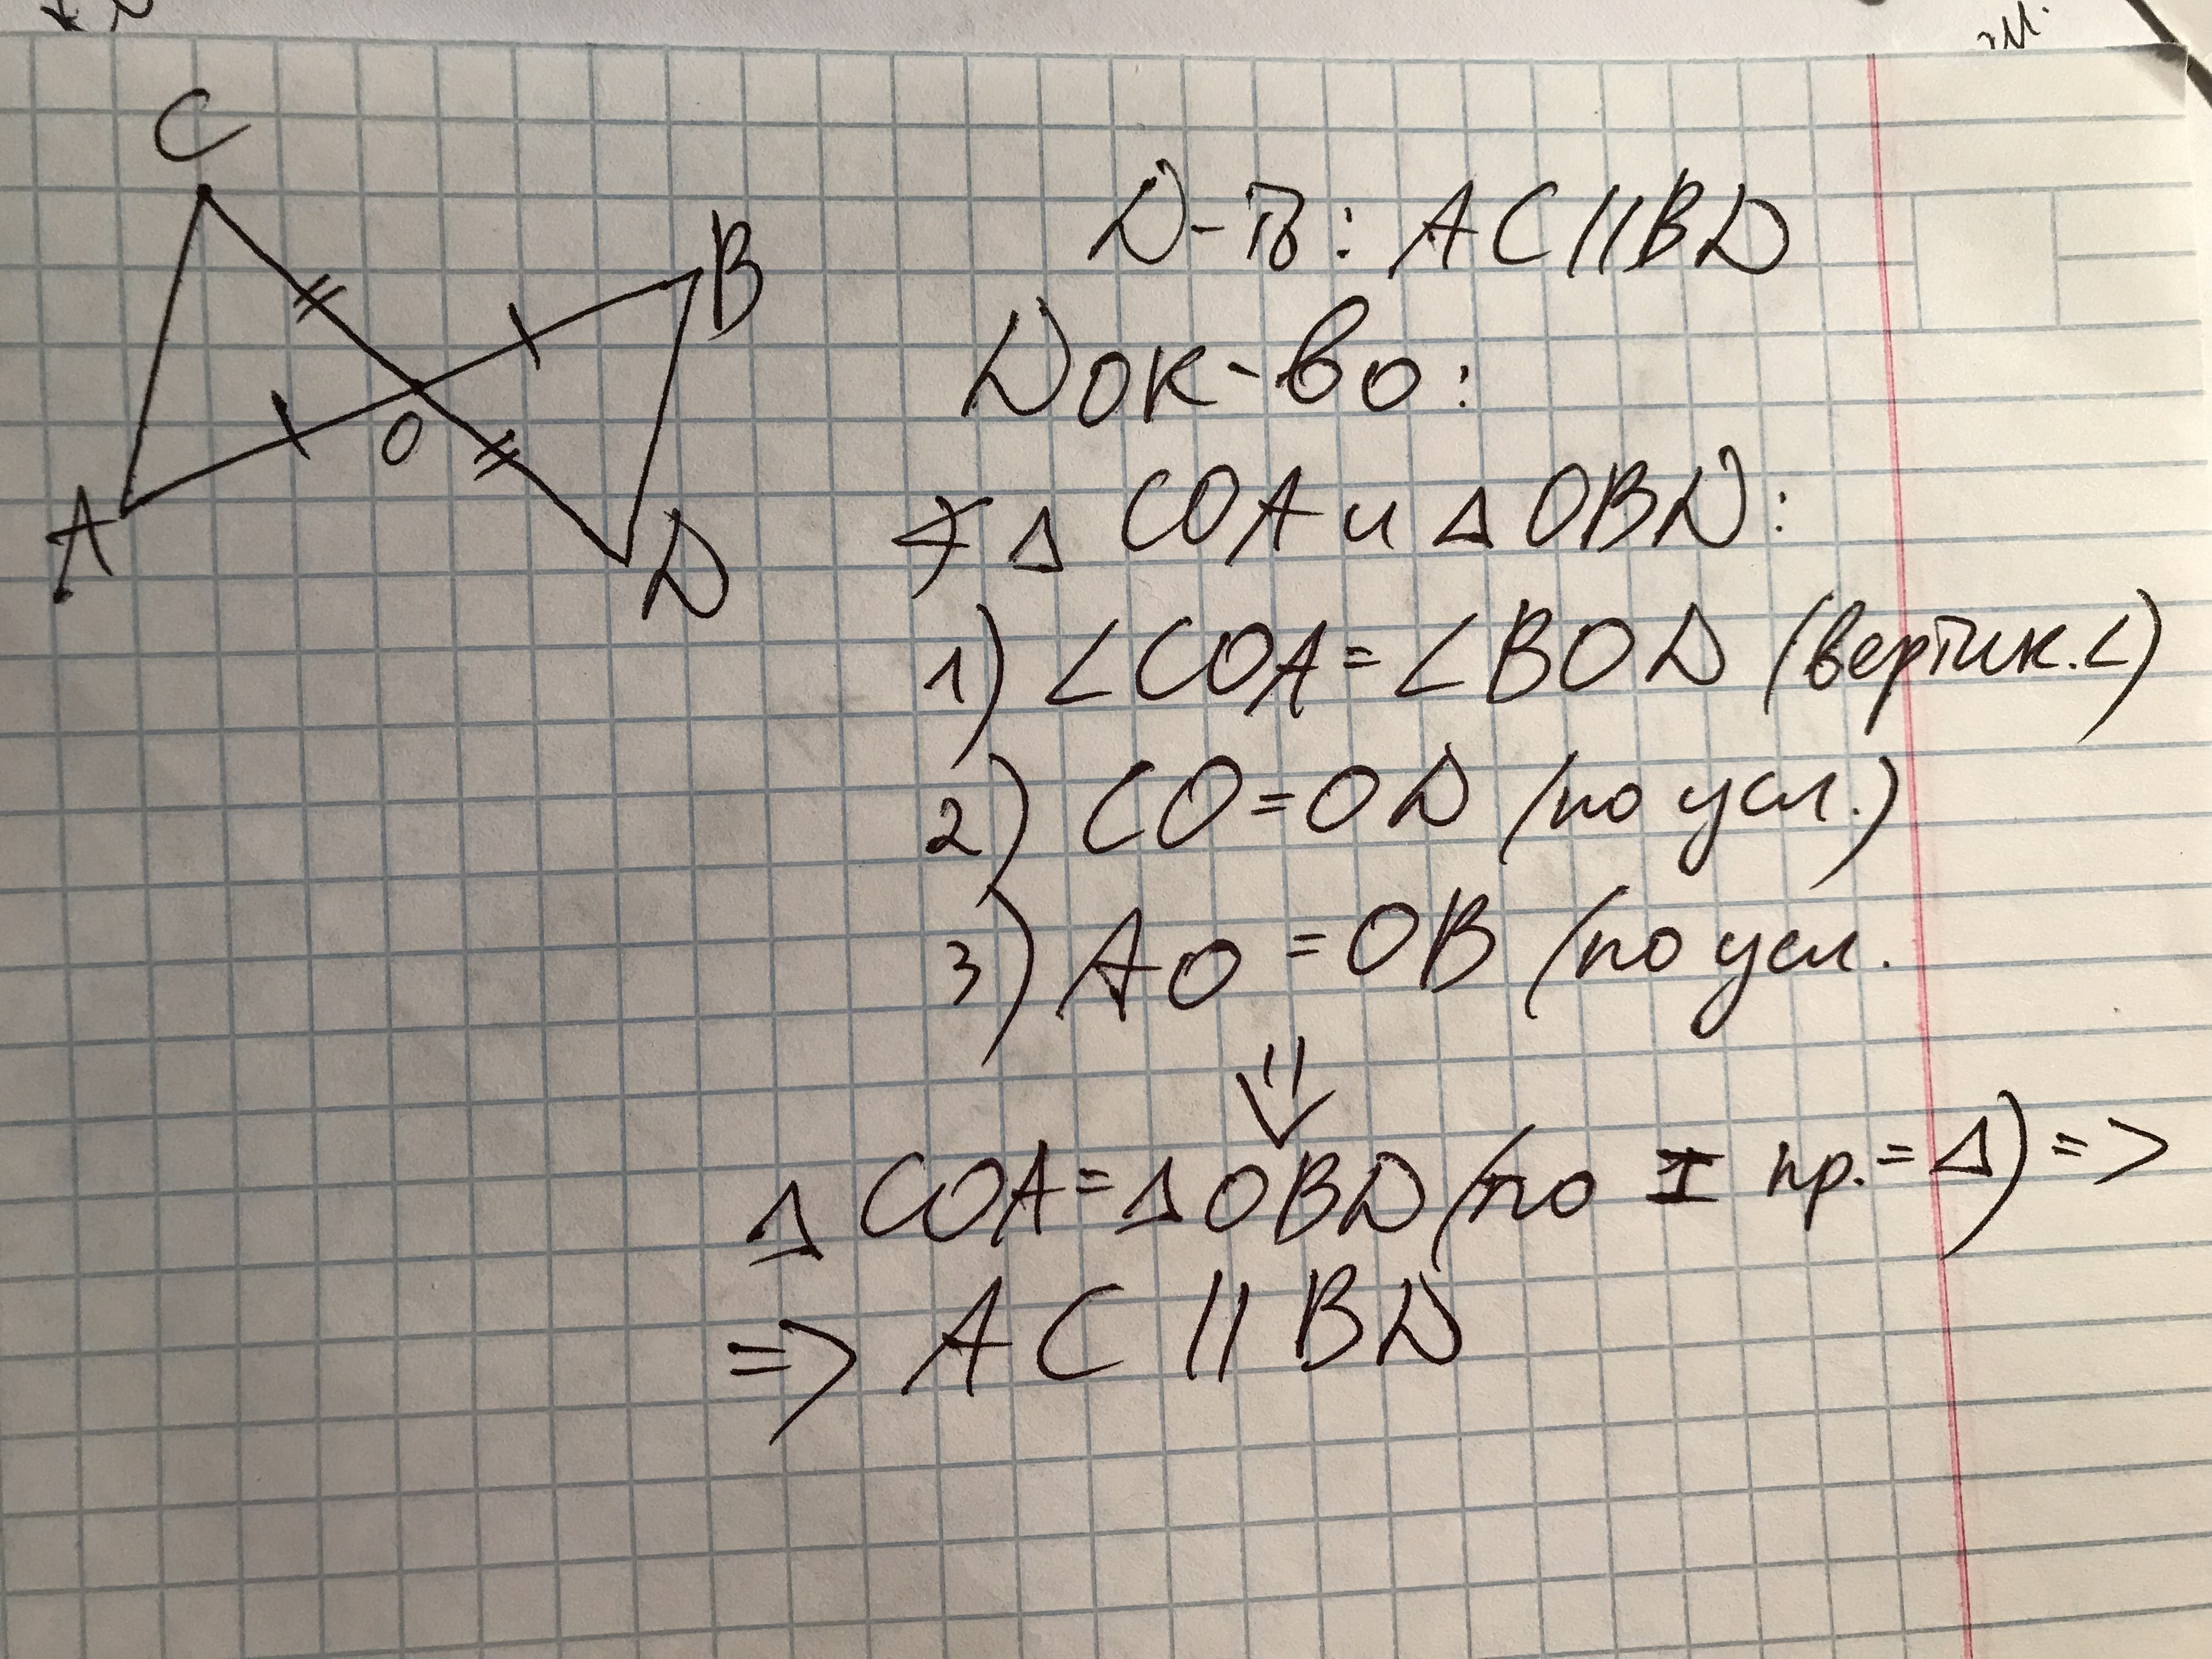 C
B
O
A
D
D-ть: AC||BD
Док-во:
∆ COA и ∆ OBD:
1) ∠COA = ∠BOD (вертик.∠)
2) CO = OD (по усл.)
3) AO = OB (по усл.
⇓
∆ COA = ∆ OBD (по I пр. = ∆) =>
=> AC || BD